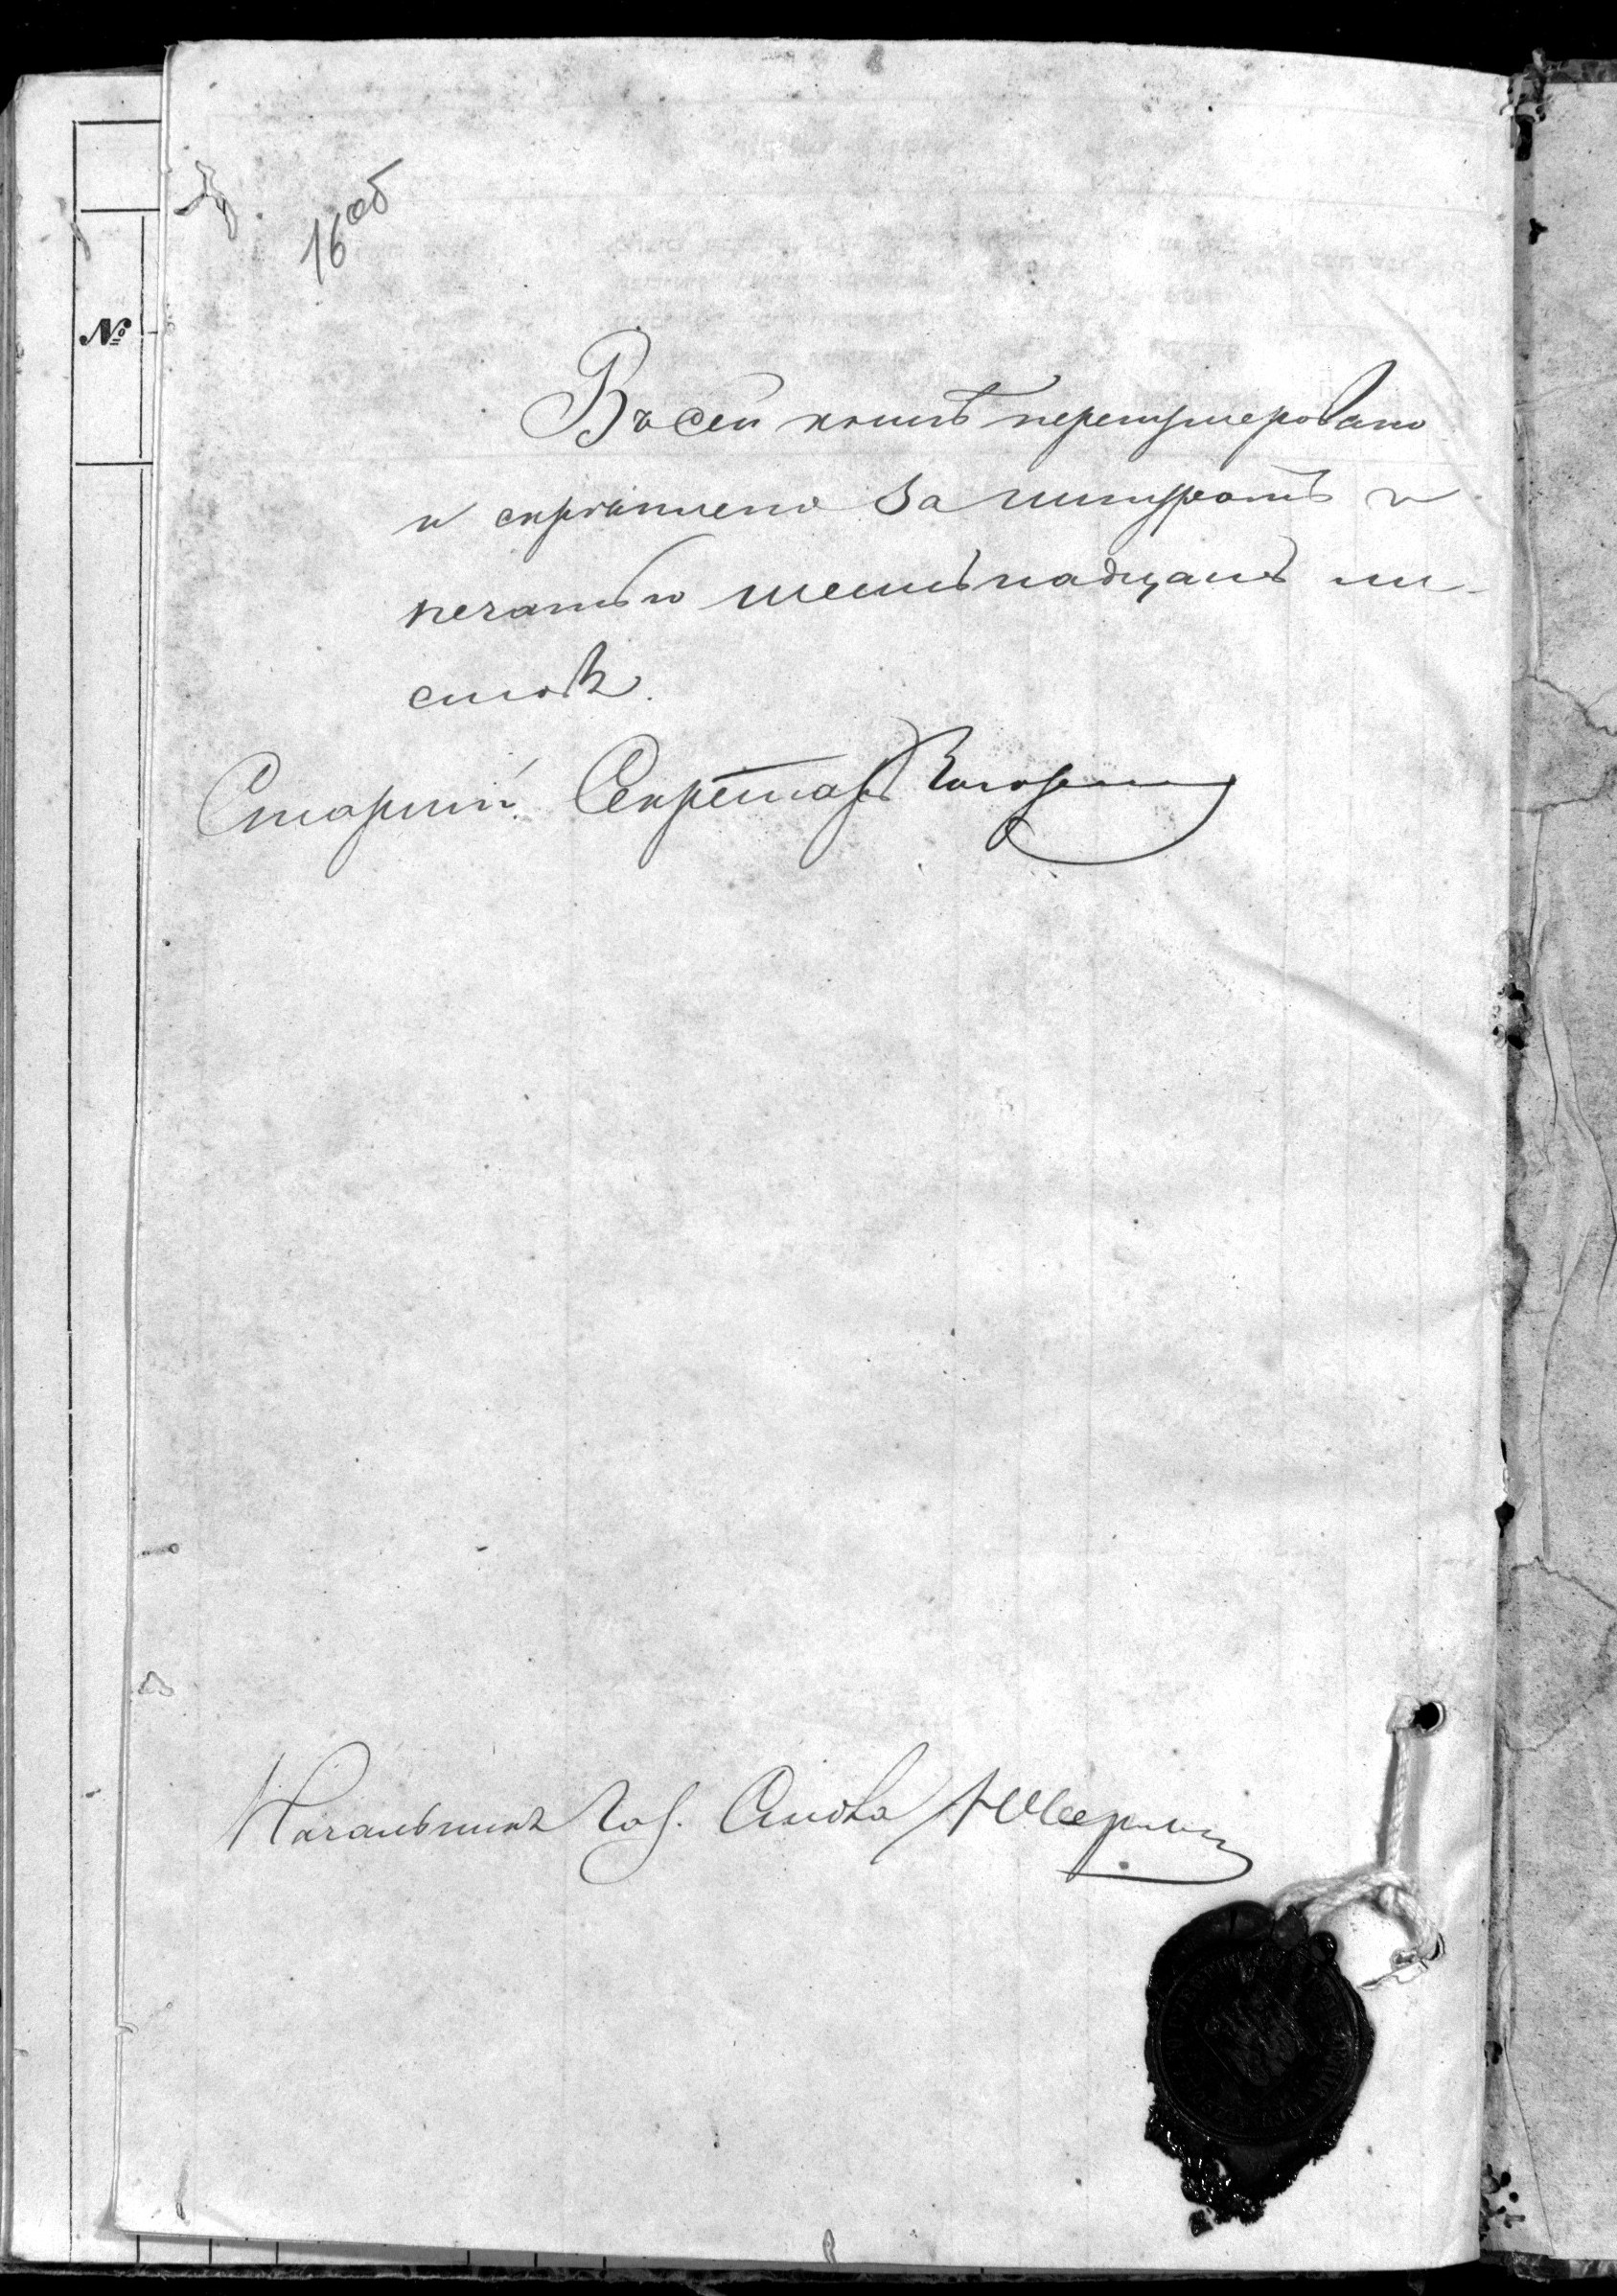 16об
№
Въ сей книгѣ перенумеровано
и скрѣплено за шнуромъ и
печатью шестьнадцать ли-
стовъ.
Старшій Секретарь
Начальникъ Стола